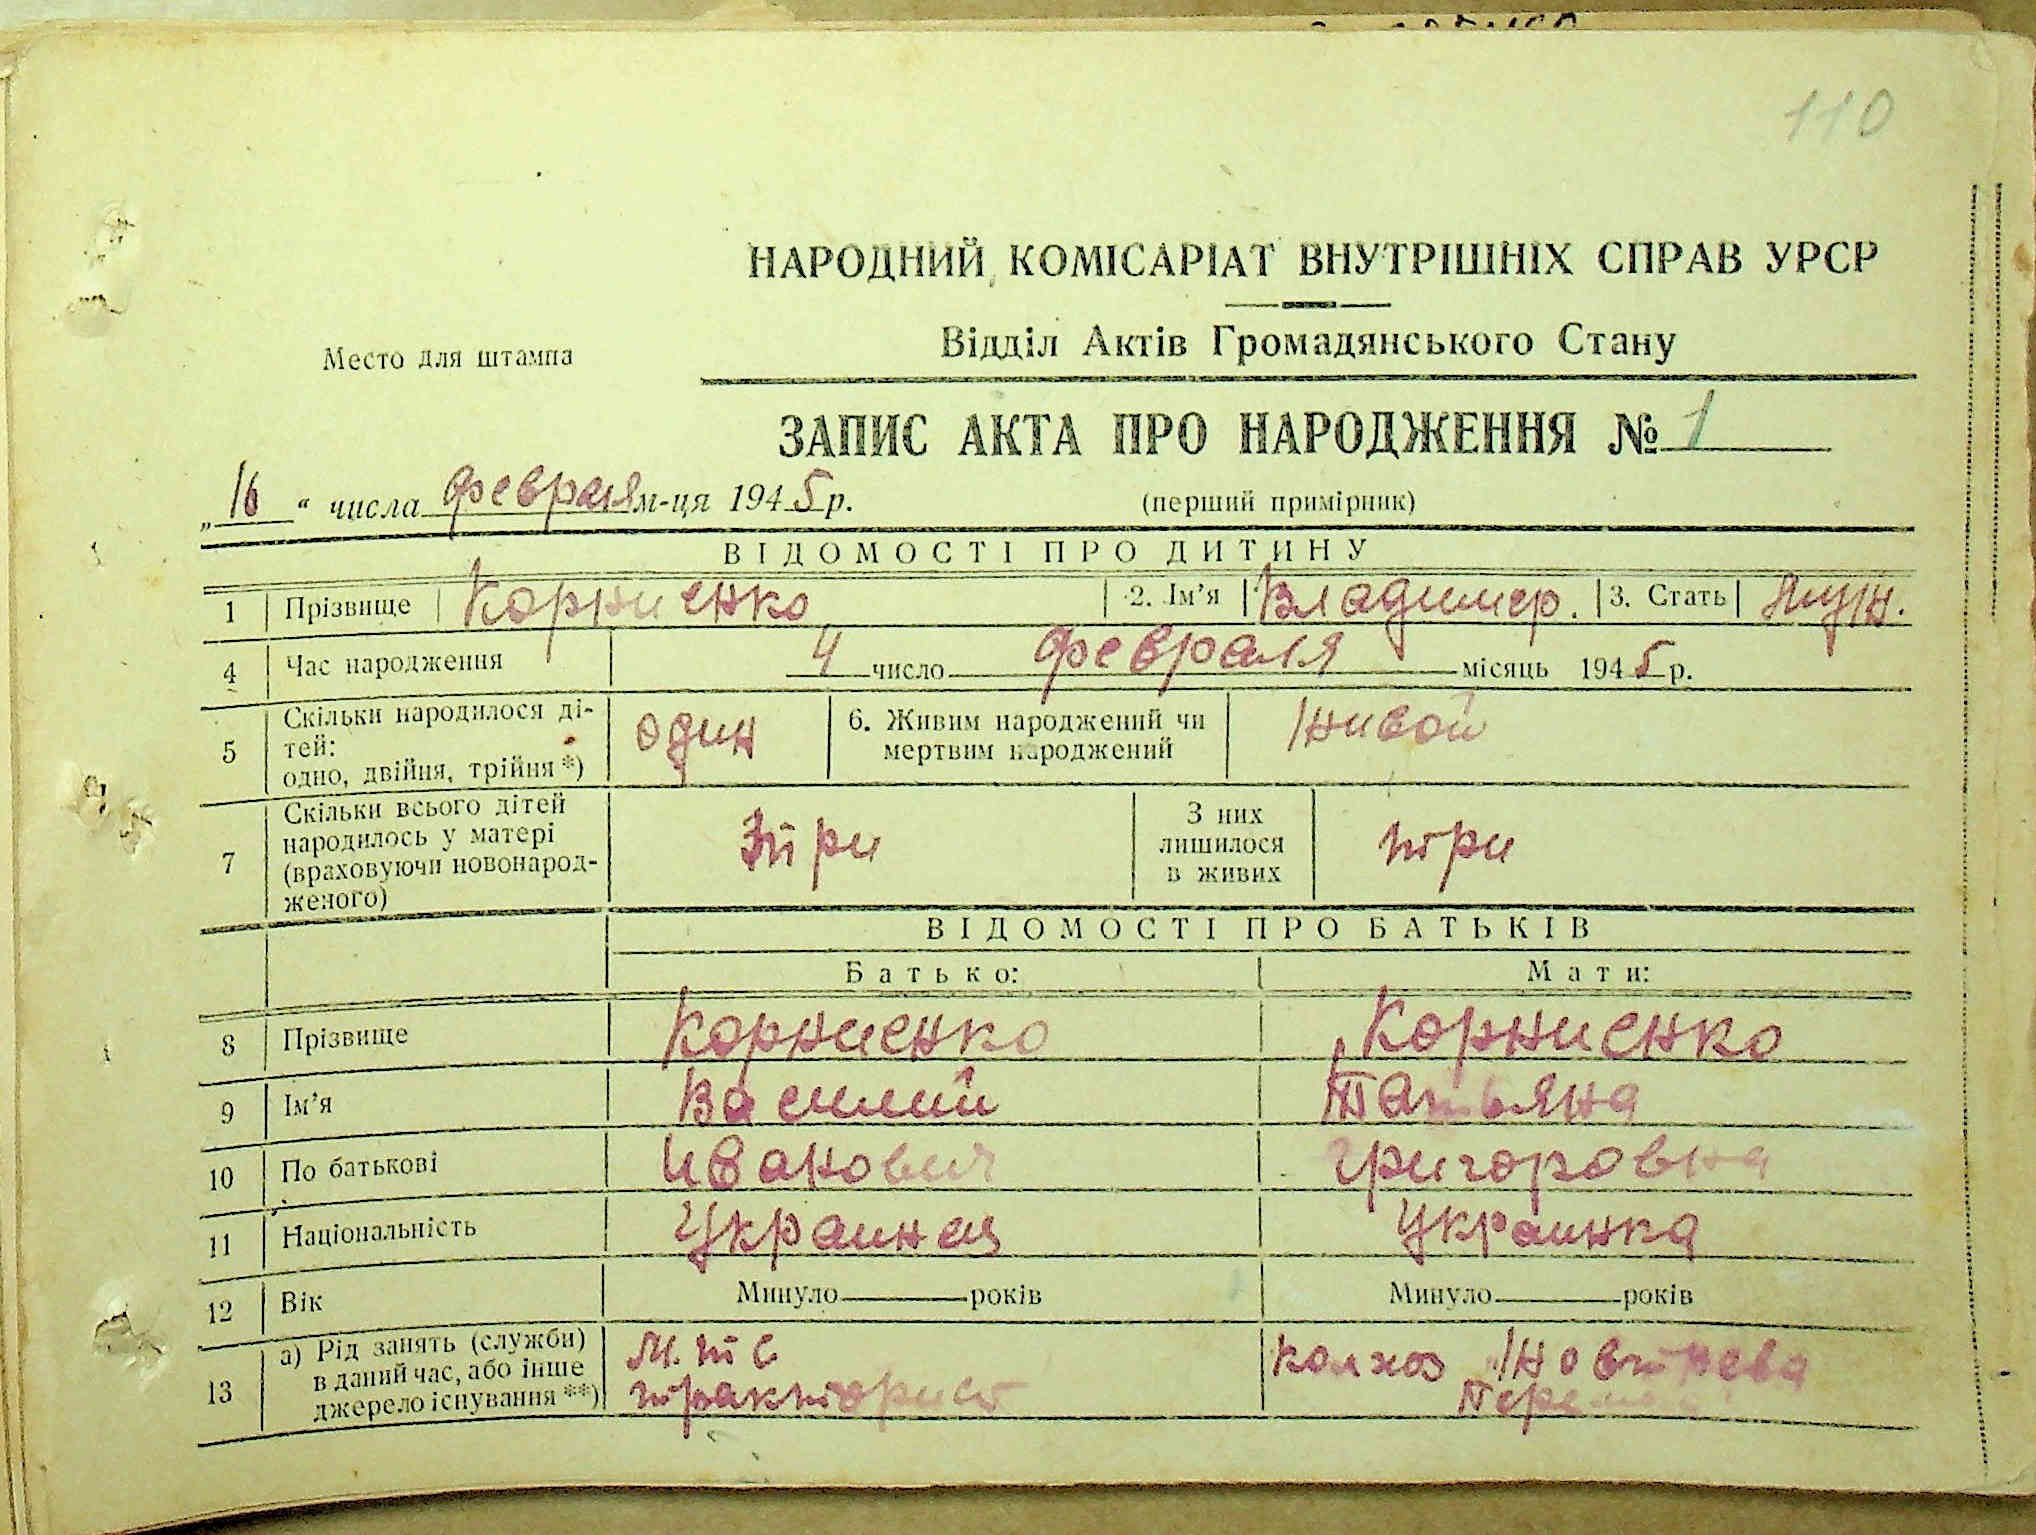 110
НАРОДНИЙ КОМІСАРІАТ ВНУТРІШНІХ СПРАВ УРСР
Відділ Актів Громадянського Стану
Место для штампа
ЗАПИС АКТА ПРО НАРОДЖЕННЯ № 1
„16“ числа февраля м-ця 1945 р.
(перший примірник)
ВІДОМОСТІ ПРО ДИТИНУ
1 Прізвище Корниенко 2. Ім'я Владимер. 3. Стать Муж.
4 Час народження 4 число февраля місяць 1945 р.
5 Скільки народилося ді-
тей:
одно, двійня, трійня *) один 6. Живим народжений чи
мертвим народжений живой
7 Скільки всього дітей
народилось у матері
(враховуючи новонарод-
женого) три З них
лишилося
в живих три
ВІДОМОСТІ ПРО БАТЬКІВ
Батько: Мати:
8 Прізвище Корниенко Корниенко
9 Ім'я Василий Татьяна
10 По батькові Иванович Григоровна
11 Національність Украинец Украинка
12 Вік Минуло років Минуло років
13 а) Рід занять (служби)
в даний час, або інше
джерело існування **) М.Т.С
тракторист Колхоз